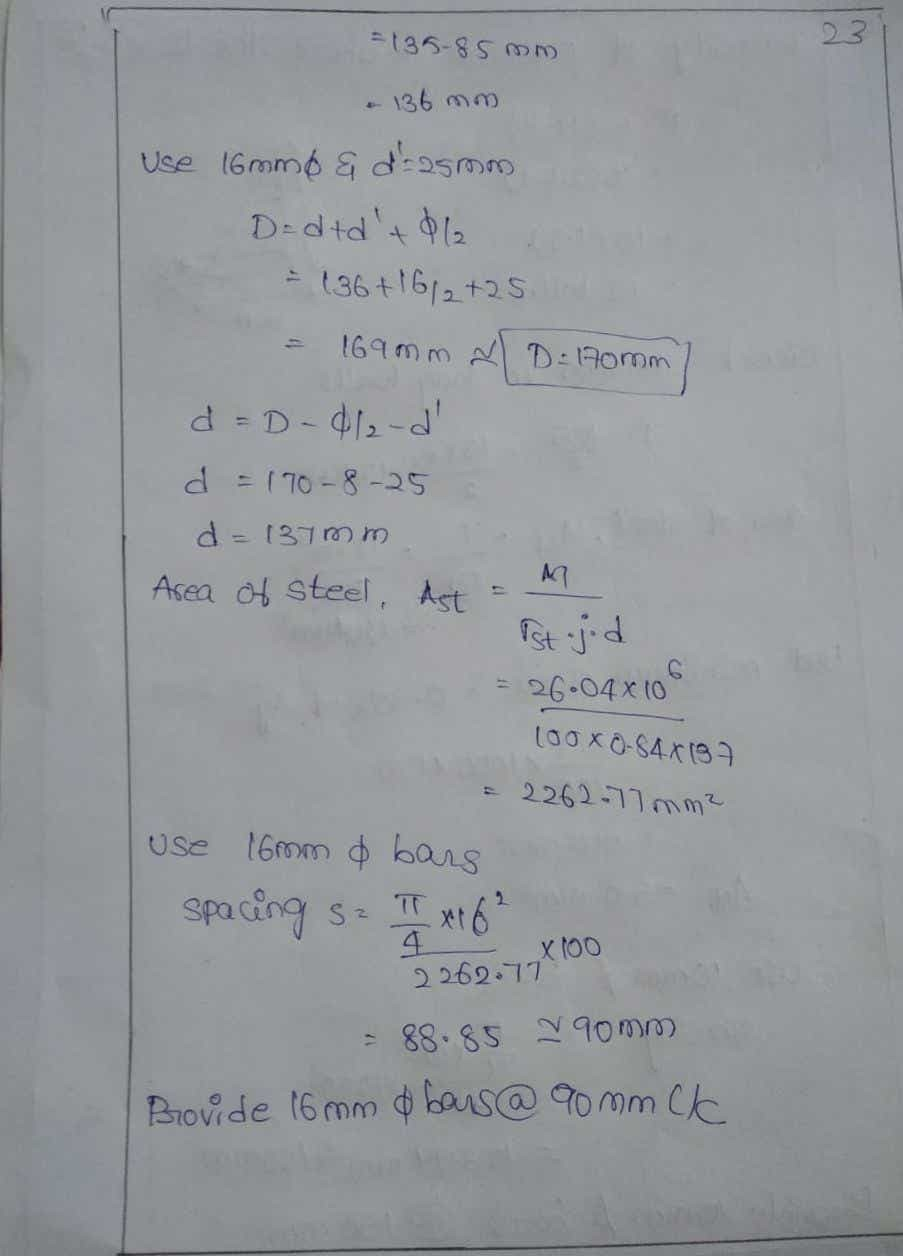 23
=135.85 mm
= 136 mm
Use 16mmϕ & d'=25mm
D=d+d'+ϕ/2
= 136+16/2+25
= 169mm ≃ D=170mm
d = D-ϕ/2-d'
d = 170-8-25
d = 137mm
Area of steel, Ast = M
σst.j.d
= 26.04×10⁶
100×0.84×137
= 2262.77mm²
Use 16mm ϕ bars
spacing s= π/4 ×16²
2262.77 ×100
= 88.85 ≃ 90mm
Provide 16mm ϕ bars@ 90mm c/c